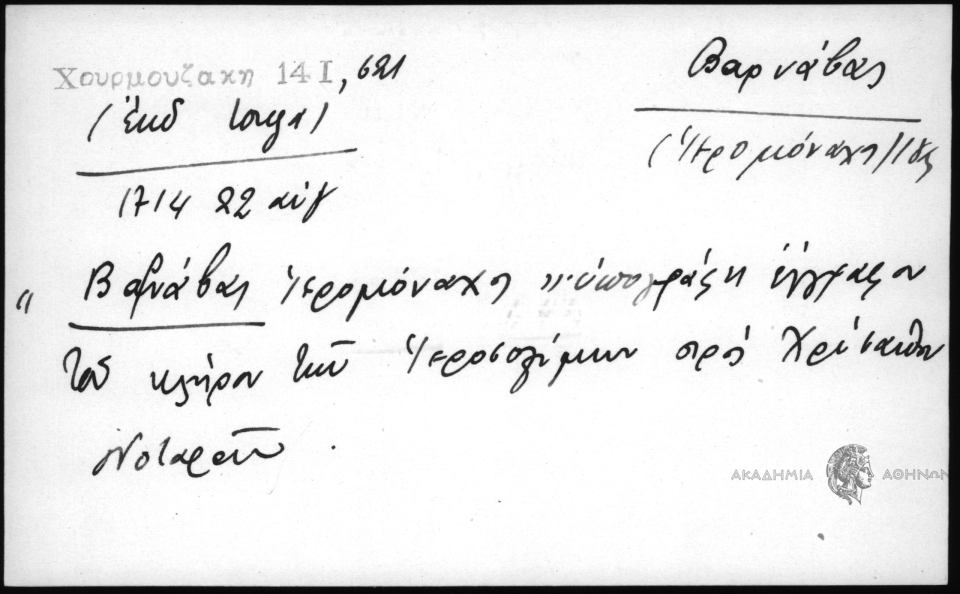 Χουρμουζακη 14 Ι, 621
(ἐκδ Ιοργα)
1714 22 αὐγ
Βαρνάβας
(Ἱερομόναχος)
" Βαρνάβας Ἱερομόναχος "ὑπογράφει ἔγγραφον
τοῦ κλήρου τῶν Ἱεροσολύμων πρὸς Χρύσανθον
Νοταρᾶν.
ΑΚΑΔΗΜΙΑ ΑΘΗΝΩΝ